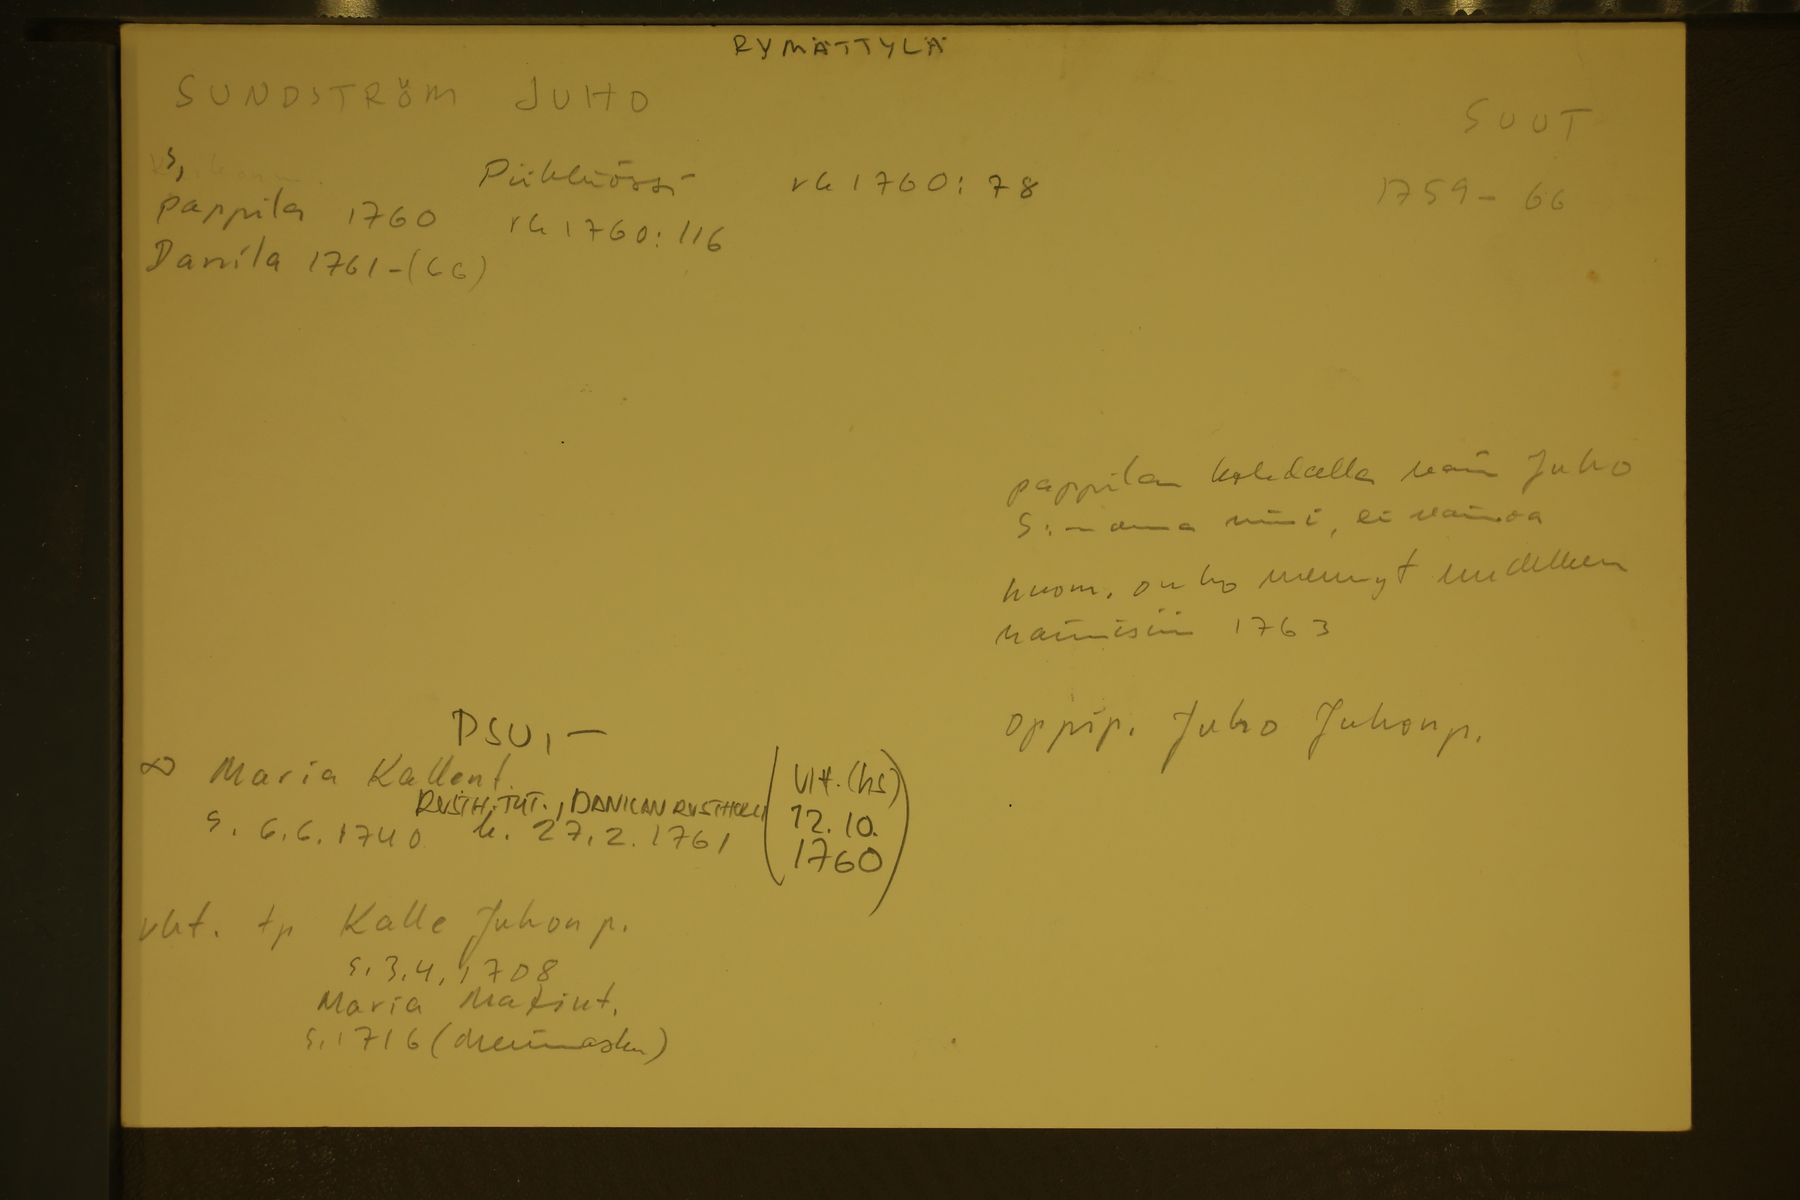 RYMÄTTYLÄ
SUNDSTRÖM JUHO
SUUT
s, Piikkiössä rk 1760: 78
1759-66
pappila 1760 rk 1760: 116
Danila 1761-(66)
pappilan kohdalla vain Juho
S:n oma nimi, ei vaimoa
huom. onko mennyt uudelleen
naimisiin 1763
oppip. Juho Juhonp.
DSU, –
∞ Maria Kallent.
RUSTH.TYT., DANILAN RUSTHOLLI
s. 6.6.1740 k. 27.2.1761
(VIH. (hs)
12.10.
1760)
vht. tp Kalle Juhonp.
s. 3.4.1708
Maria Matint.
s. 1716 (Merimasku)